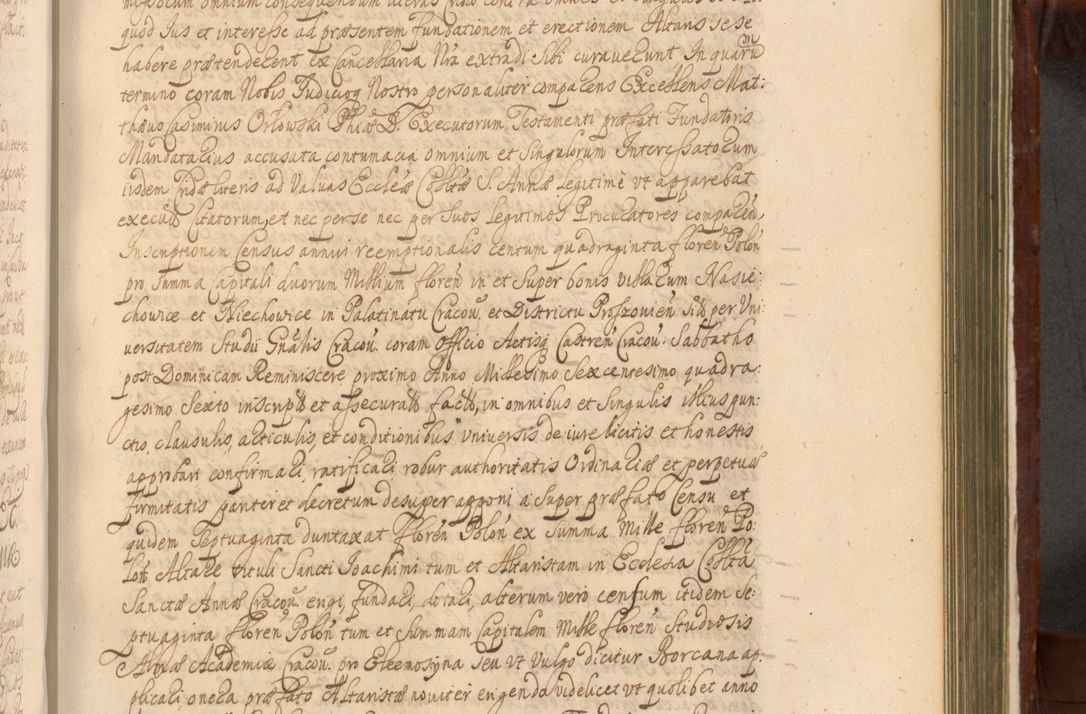 quod Jus et interesse ad præsentem fundationem et erectionem Altaris se se
habere prætenderent Ex Cancellaria Nrã extradi Sibi curaverunt In quarũ
termino coram Nobis Judicioq Nostro personaliter comparens Excellens Mat:
thæus Casimirus Orłowski Phiæ D. Executorum Testamenti præfati Fundatoris
Mandatarius accusata contumacia omnium et Singulorum Interessatorum
iisdem literis ad Valvas Eccleæ Collæ S. Annæ legitimè vt apparebat
Citatorum, et nec per se nec per Suos legitimos Procuratores comparen,
Inscriptionem Census annui reemptionalis centum quadraginta floren Polon
pro Summa Capitali duorum Millium floren in et Super bonis villarum Nasie:
chowice et Niechowice in Palatinatu Cracou. et Districtu Proszouien per Vni
versitatem Studii Gnãlis Cracou. coram Officio Actisq Castren Cracou. Sabbatho
post Dominicam Reminiscere proximo Anno Millesimo Sexcentesimo quadra:
gesimo Sexto inscript et assecurat fact, in omnibus et Singulis illius pun:
ctis, clausulis, articulis, et conditionibus vniversis de iure licitis et honestis
approbari confirmari, ratificari robur authoritatis Ordinariæ et perpetuæ
firmitatis et decretum desuper apponi a Super præfato Censu et
quidem Septuaginta duntaxat floren Polon ex Summa Mille floren Po:
lon Altare tituli Sancti Joachimi tum et Altaristam in Ecclesia Collta
Sanctæ Annæ Cracou. erigi, fundari, dotari, alterum verò censum itidem Se:
ptuaginta floren Polon tum et Summam Capitalem Mille floren Studiosis
Almæ Academiæ Cracou. pro Eleemosyna Seu vt Vulgo dicitur Borcana ap:
plicari onera præfato Altaristæ noviter erigenda videlicet vt quolibet anno